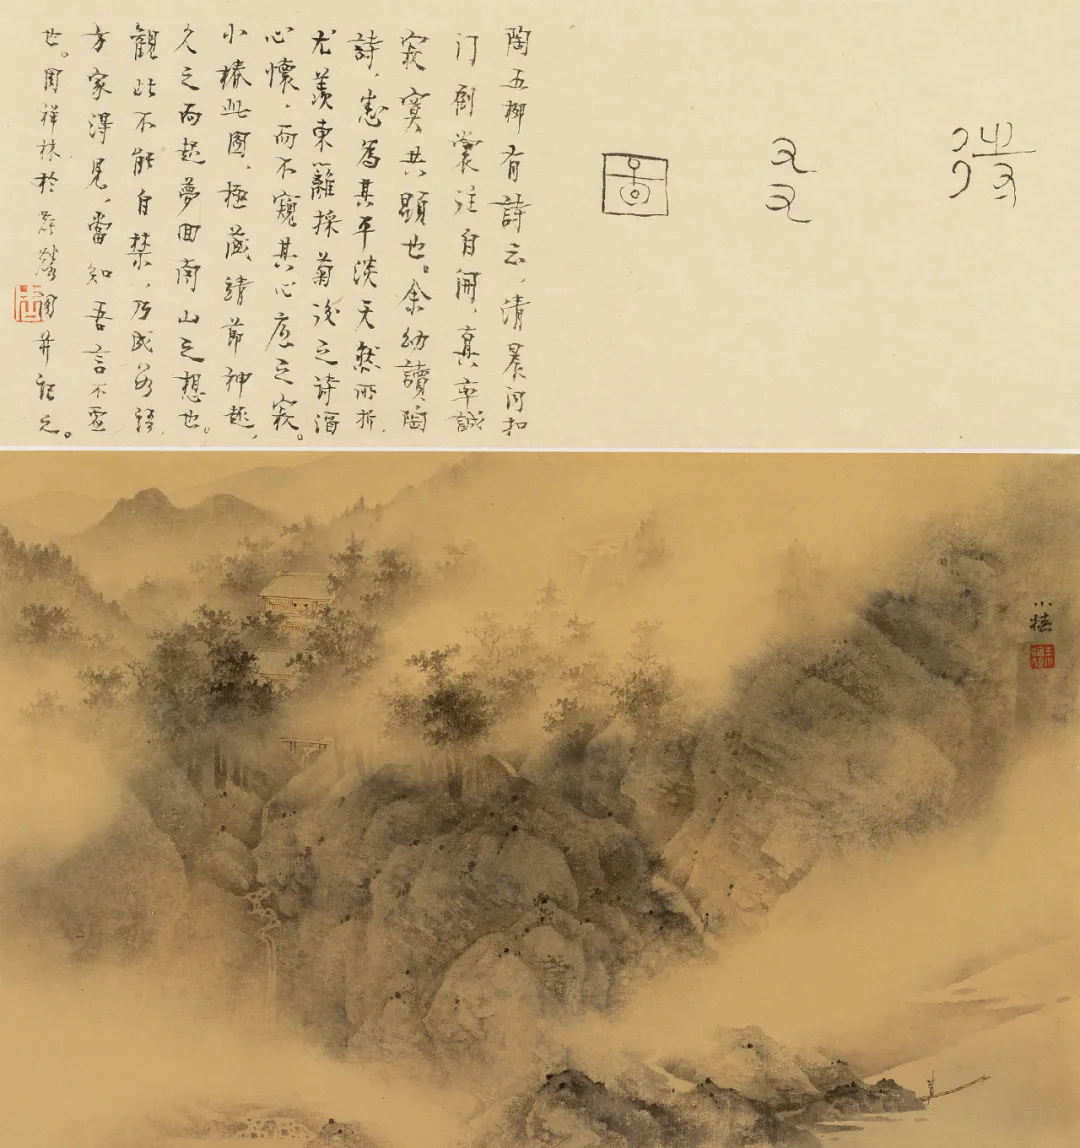 待友圖
陶五柳有詩云，清晨聞扣
门倒裳往自開，真率誠
寂寞共顯也。余幼讀陶
詩，悉為其平淡天然所折，
尤羨東籬採菊後之詩酒
心懷，而不窺其心底之寂。
小椿此圖，極靖節神趣，
久之而起夢回南山之想也。
觀此不能自禁，乃成語，
方家得見，當知吾言不虛
也。周祥林於并記之。
小椿